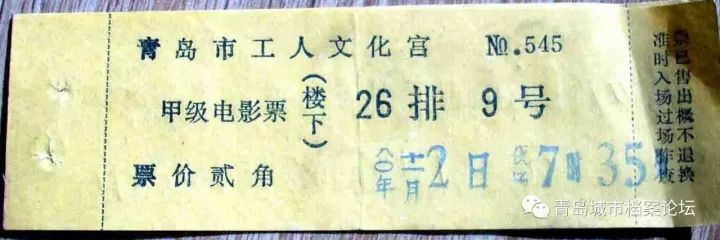 青岛市工人文化宫 №.545
甲级电影票(楼下) 26排 9号
票价贰角
八〇年十二月2日 晚 7时35
票已售出概不退换
准时入场过场作废
青岛城市档案论坛